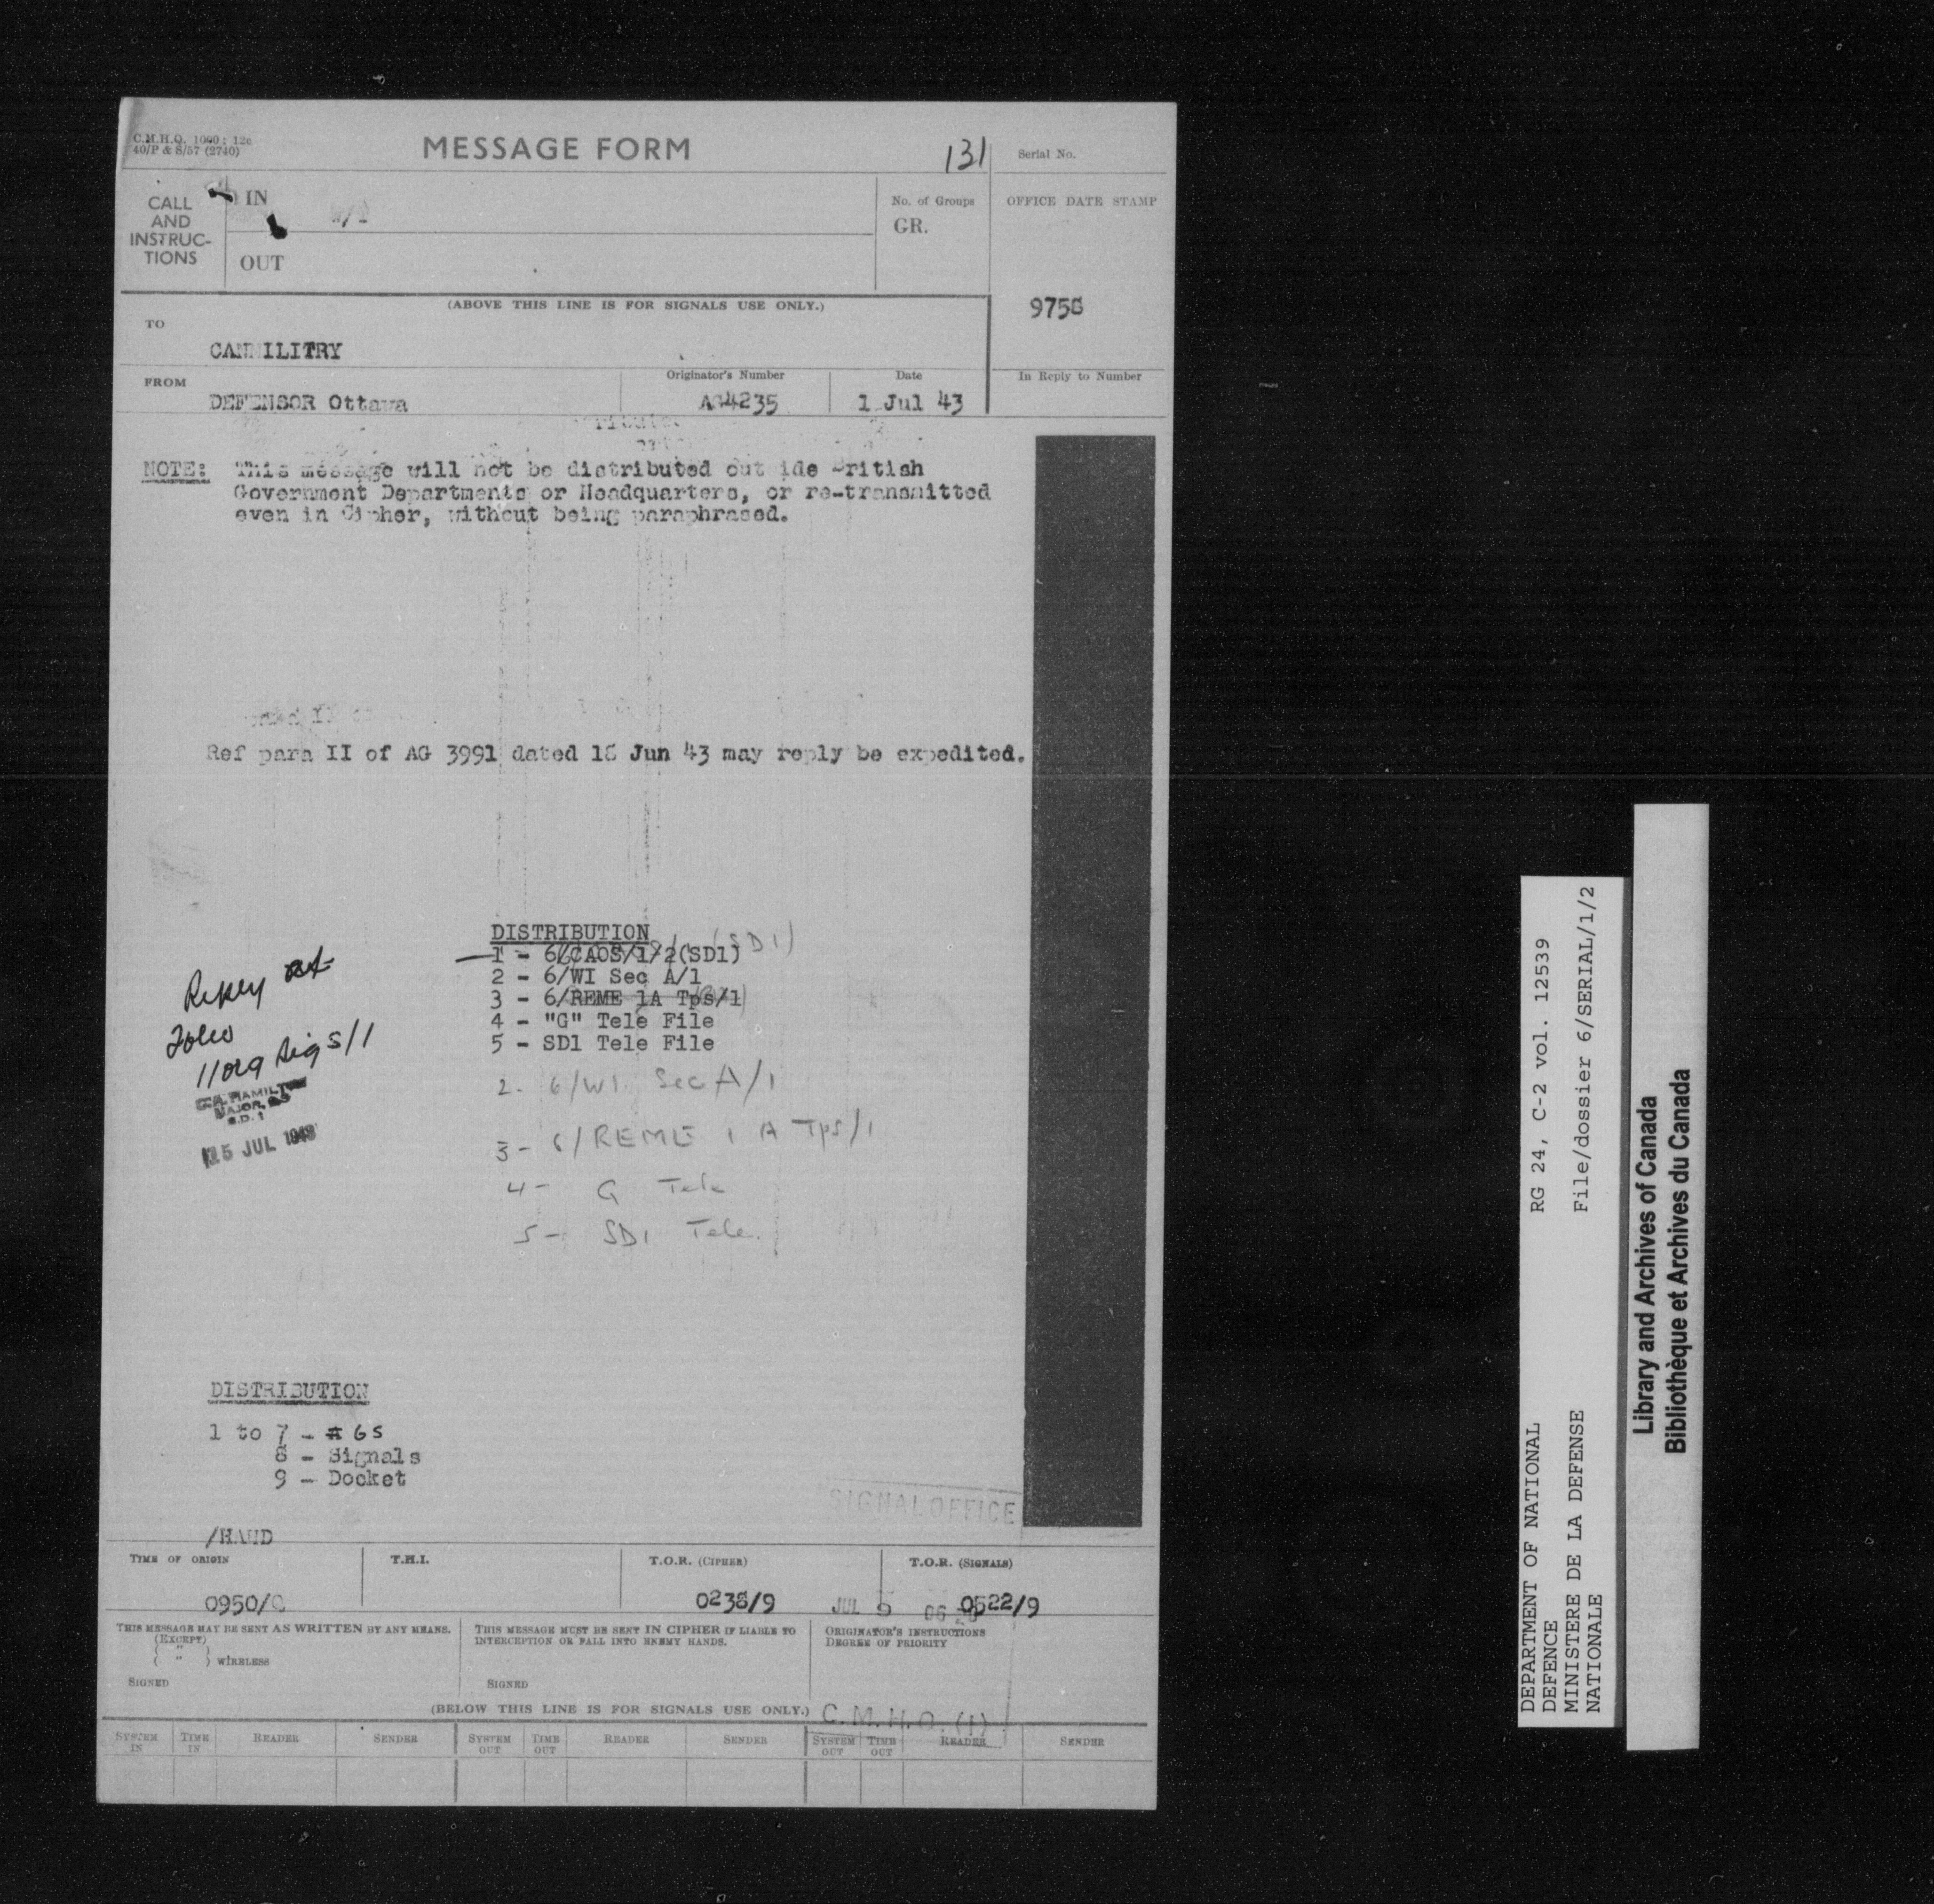 C.M.H.Q. 1000 : 12c
40/P & S/57 (2740)
MESSAGE FORM
131
Serial No.
CALL
AND
INSTRUC-
TIONS
IN
OUT
No. of Groups
GR.
OFFICE DATE STAMP
(ABOVE THIS LINE IS FOR SIGNALS USE ONLY.)
9758
TO
CANMILITRY
FROM
DEFENSOR Ottawa
Originator's Number
AG4235
Date
1 Jul 43
In Reply to Number
NOTE: This message will not be distributed outside British
Government Departments or Headquarters, or re-transmitted
even in Cipher, without being paraphrased.
Ref para II of AG 3991 dated 18 Jun 43 may reply be expedited.
DISTRIBUTION
(SD1)
1 - 6/CAOS/1/2(SD1)
2 - 6/WI Sec A/1
3 - 6/REME 1A Tps/1
4 - "G" Tele File
5 - SD1 Tele File
2. 6/WI Sec A/1
3 - 6/REME 1 A Tps/1
4 - G Tele
5 - SD1 Tele.
Reply at
folio
MAJOR, GS
S.D. 1
5 JUL 1943
DISTRIBUTION
1 to 7 - GS
8 - Signals
9 - Docket
SIGNAL OFFICE
/HAUD
TIME OF ORIGIN
0950/
T.H.I.
T.O.R. (CIPHER)
0238/9
T.O.R. (SIGNALS)
JUL 5
0522/9
THIS MESSAGE MAY BE SENT AS WRITTEN BY ANY MEANS.
(EXCEPT)
( " ) WIRELESS
SIGNED
THIS MESSAGE MUST BE SENT IN CIPHER IF LIABLE TO
INTERCEPTION OR FALL INTO ENEMY HANDS.
SIGNED
ORIGINATOR'S INSTRUCTIONS
DEGREE OF PRIORITY
(BELOW THIS LINE IS FOR SIGNALS USE ONLY.)
C.M.H.Q. (1)
SYSTEM IN
TIME IN
READER
SENDER
SYSTEM OUT
TIME OUT
READER
SENDER
SYSTEM OUT
TIME OUT
READER
SENDER
DEPARTMENT OF NATIONAL
DEFENCE
MINISTERE DE LA DEFENSE
NATIONALE
RG 24, C-2 vol. 12539
File/dossier 6/SERIAL/1/2
Library and Archives of Canada
Bibliothèque et Archives du Canada